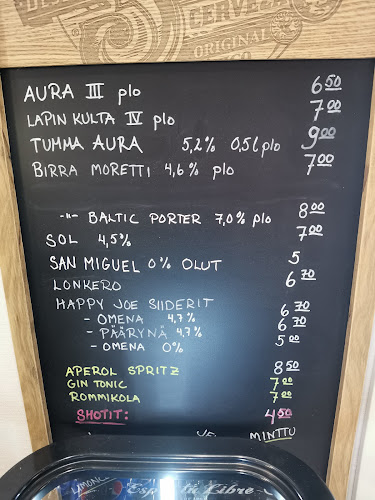 CERVEZA
ORIGINAL
AURA III plo 6 50
LAPIN KULTA IV plo 7 00
TUMMA AURA 5,2% 0,5l plo 9 00
BIRRA MORETTI 4,6% plo 7 00
-"- BALTIC PORTER 7,0% plo 8 00
SOL 4,5% 7 00
SAN MIGUEL 0% OLUT 5
LONKERO 6 70
HAPPY JOE SIIDERIT
- OMENA 4,7% 6 70
- PÄÄRYNÄ 4,7% 6 70
- OMENA 0% 5 00
APEROL SPRITZ 8 50
GIN TONIC 7 00
ROMMIKOLA 7 00
SHOTIT: 4 50
MINTTU